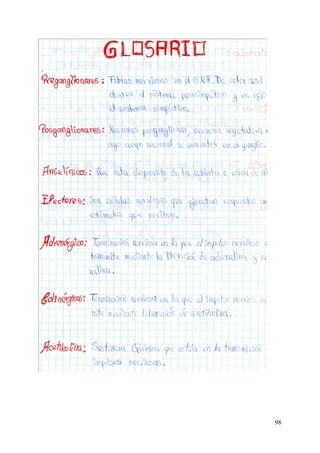 GLOSARIO
Preganglionares: Fibras nerviosas en el S.N.A. De color azul
observa el sistema parasimpático y en rojo
el sistema simpático.
Posganglionares: Neuronas posganglionar, neurona vegetativa
cuyo cuerpo neuronal se encuentra en el ganglio.
Amielínicos: Que esta desprovisto de la cubierta o vaina de
Efectores: Son células nerviosas que ejecutan respuesta
estímulos que reciben.
Adrenérgico: Terminación nerviosa en la que el impulso nervioso
transmite mediante la liberación de adrenalina y
nalina.
Colinérgicas: Terminación nerviosa en la que el impulso nervioso
mediante liberación de acetilcolina.
Acetilcolina: Sustancia Química que actúa en la transmisión
impulsos nerviosos.
98